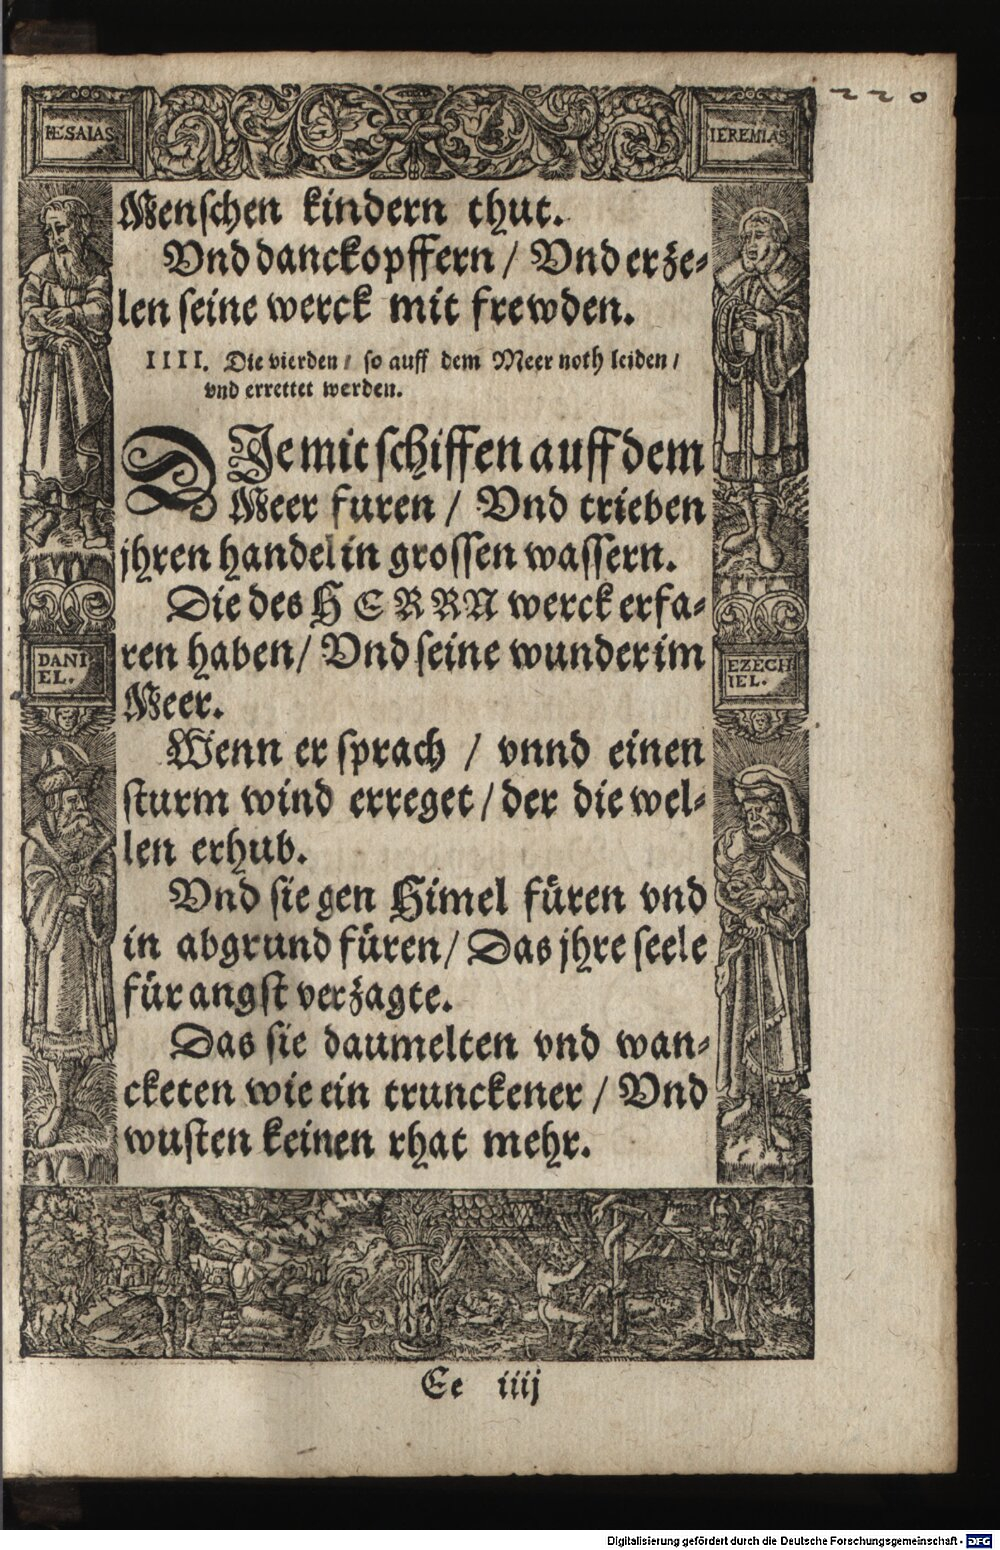 220
HESAIAS
IEREMIAS
Menschen kindern thut.
Vnd danckopffern / Vnd erze-
len seine werck mit frewden.
IIII. Die vierden / so auff dem Meer noth leiden /
vnd errettet werden.
DJe mit schiffen auff dem
Meer furen / Vnd trieben
jhren handel in grossen wassern.
Die des HERRN werck erfa-
ren haben / Vnd seine wunder im
Meer.
DANI
EL.
EZECH
IEL.
Wenn er sprach / vnnd einen
sturm wind erreget / der die wel-
len erhub.
Vnd sie gen Himel füren vnd
in abgrund füren / Das jhre seele
für angst verzagte.
Das sie daumelten vnd wan-
cketen wie ein trunckener / Vnd
wusten keinen rhat mehr.
Ee iiij
Digitalisierung gefördert durch die Deutsche Forschungsgemeinschaft - DFG